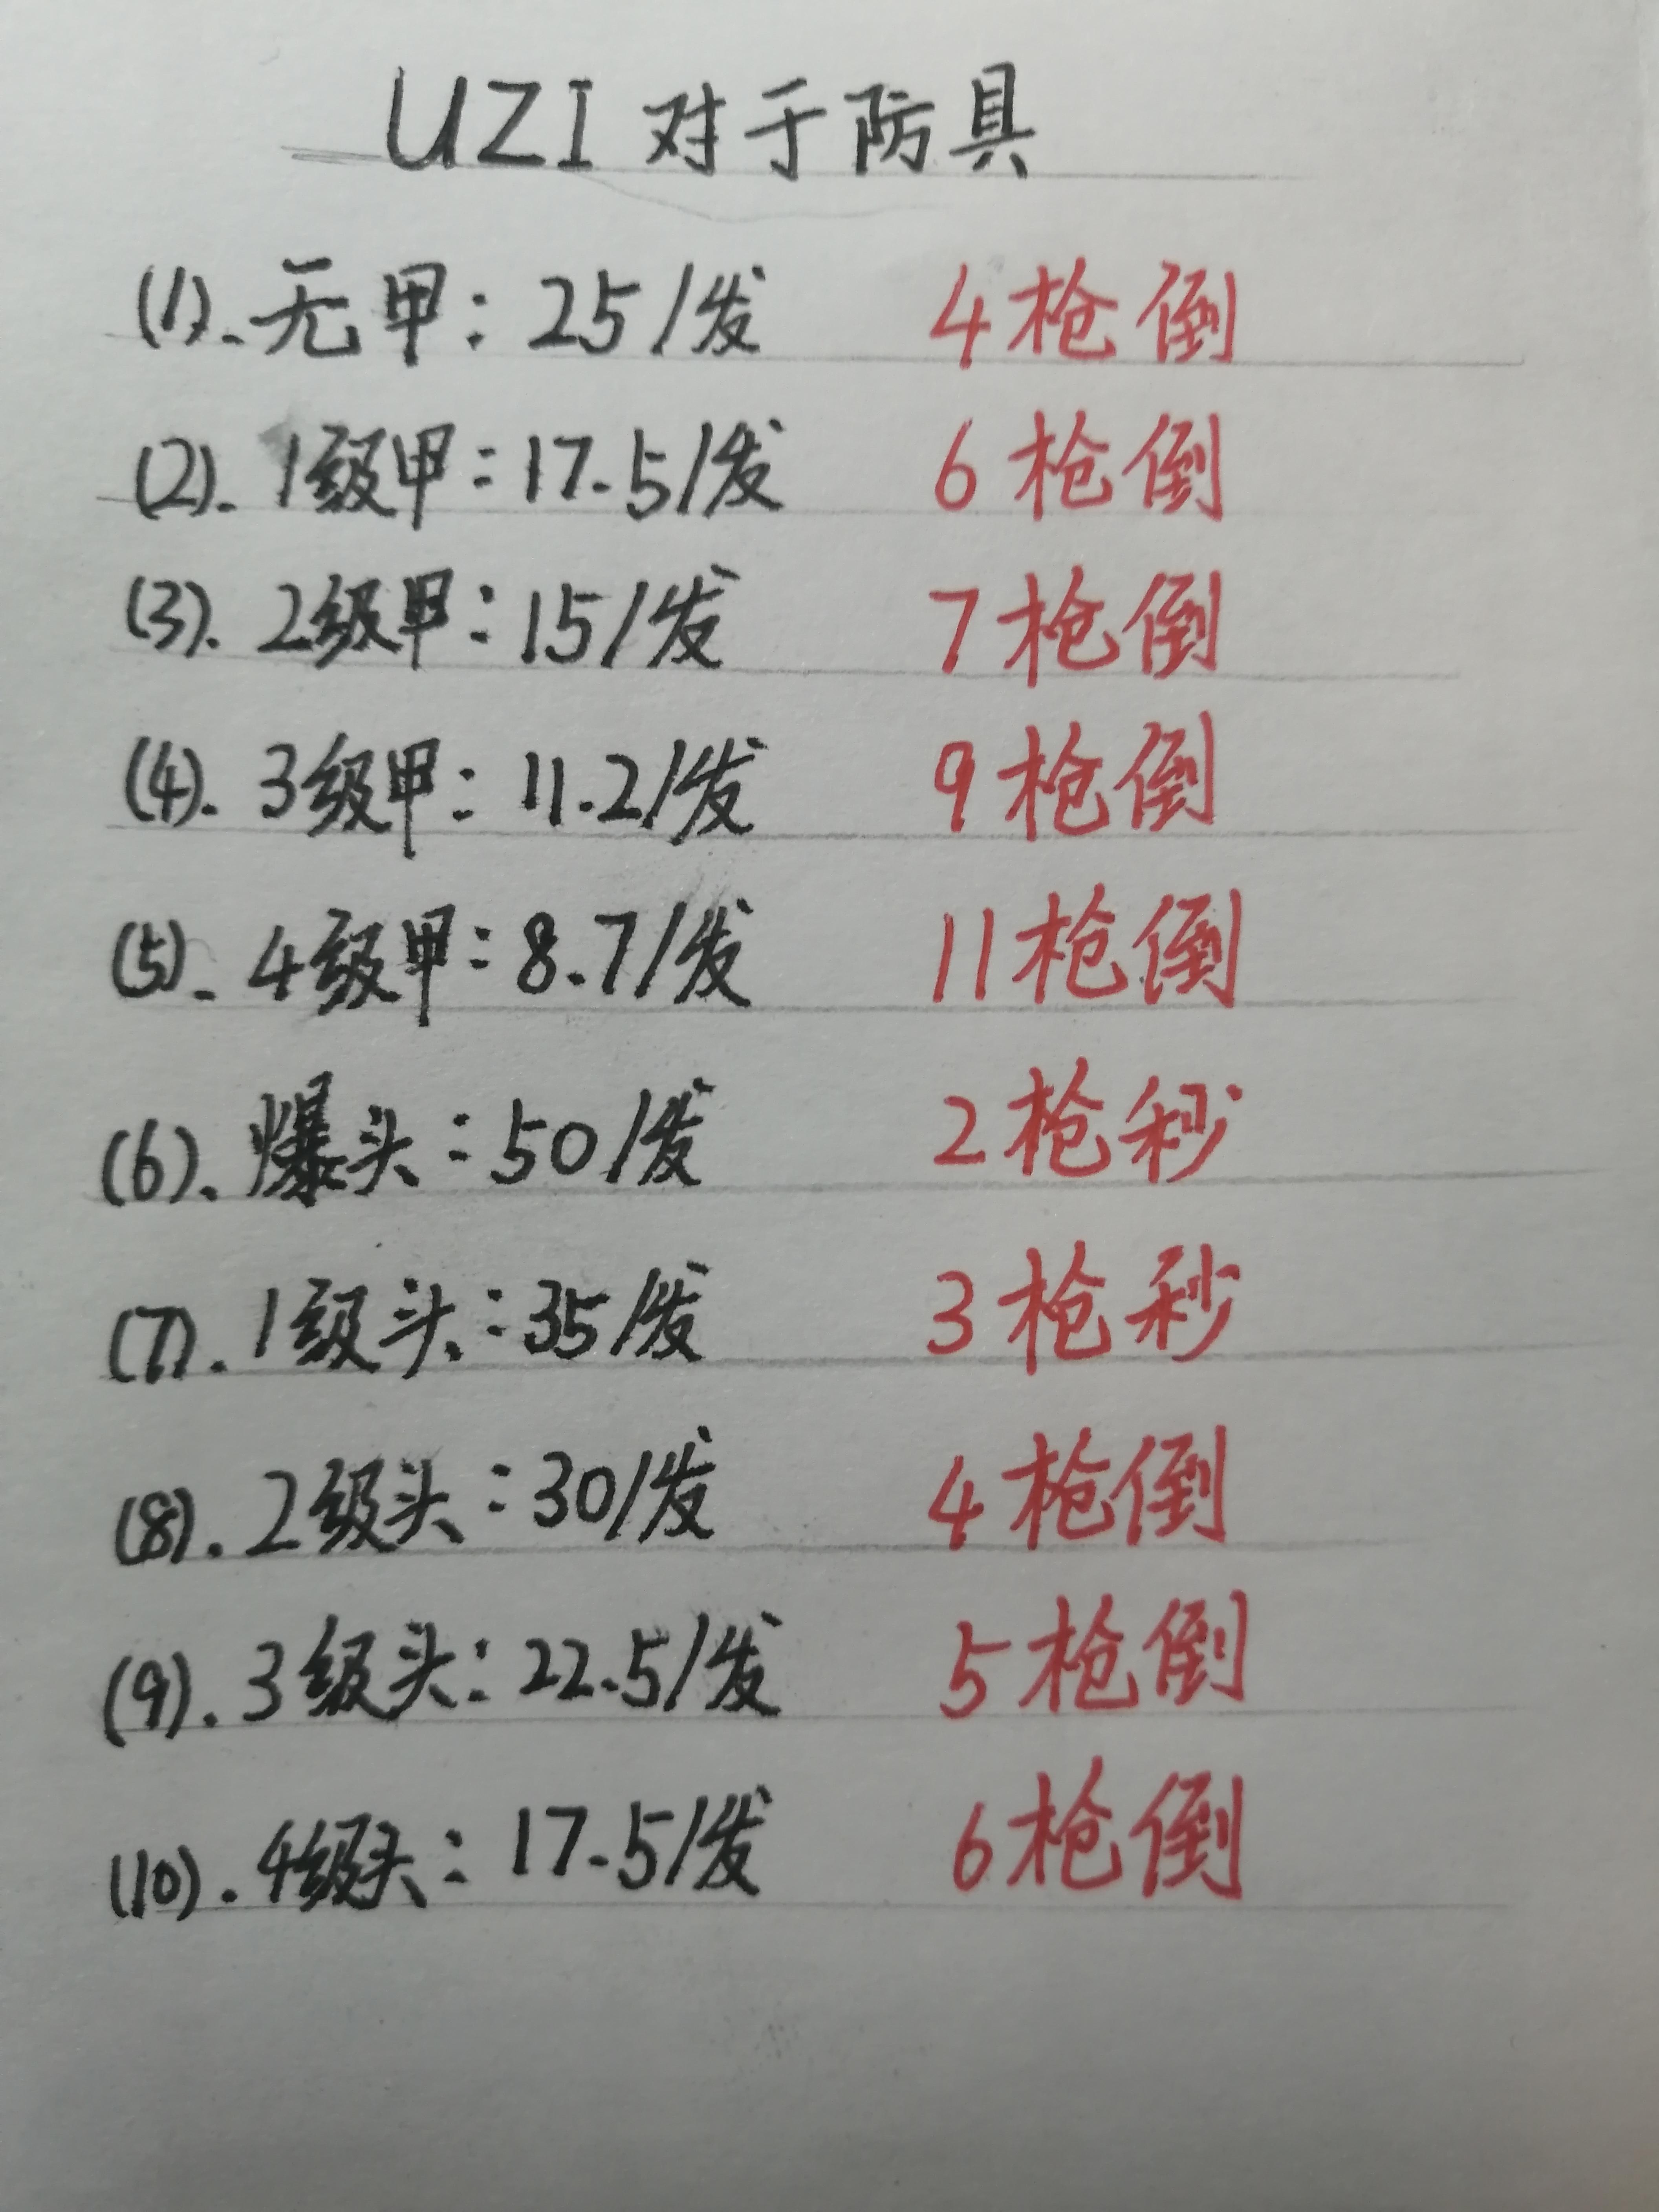 UZI 对于防具
(1). 无甲：25/发 4枪倒
(2). 1级甲：17.5/发 6枪倒
(3). 2级甲：15/发 7枪倒
(4). 3级甲：11.2/发 9枪倒
(5). 4级甲：8.7/发 11枪倒
(6). 爆头：50/发 2枪秒
(7). 1级头：35/发 3枪秒
(8). 2级头：30/发 4枪倒
(9). 3级头：22.5/发 5枪倒
(10). 4级头：17.5/发 6枪倒